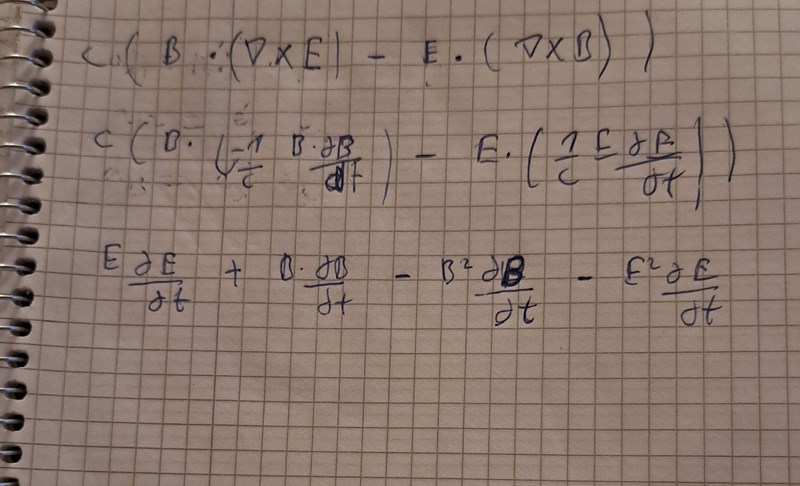 C ( B · (∇×E) − E · (∇×B) )
C ( B · ( −1/c B · ∂B/∂t ) − E · ( 1/c E ∂E/∂t ) )
E ∂E/∂t + B · ∂B/∂t − B² ∂B/∂t − E² ∂E/∂t